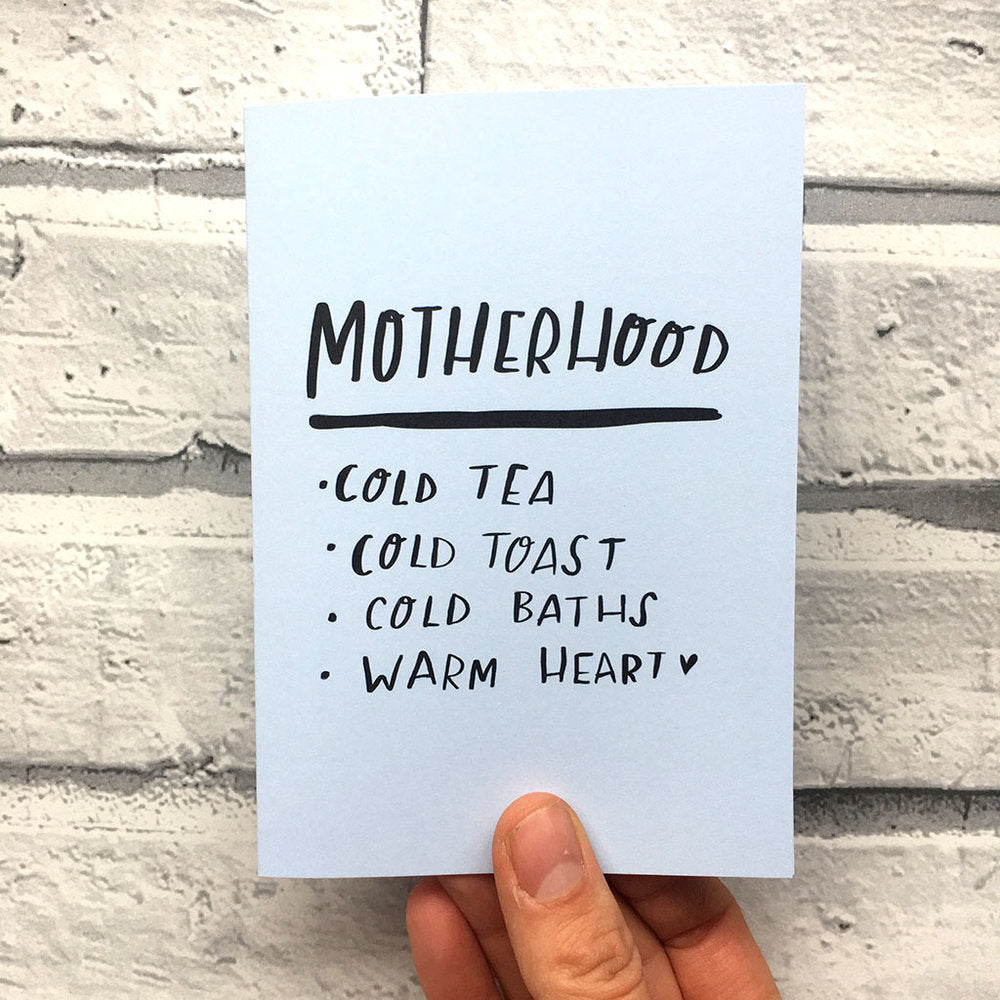 MOTHERHOOD
• COLD TEA
• COLD TOAST
• COLD BATHS
• WARM HEART ♥